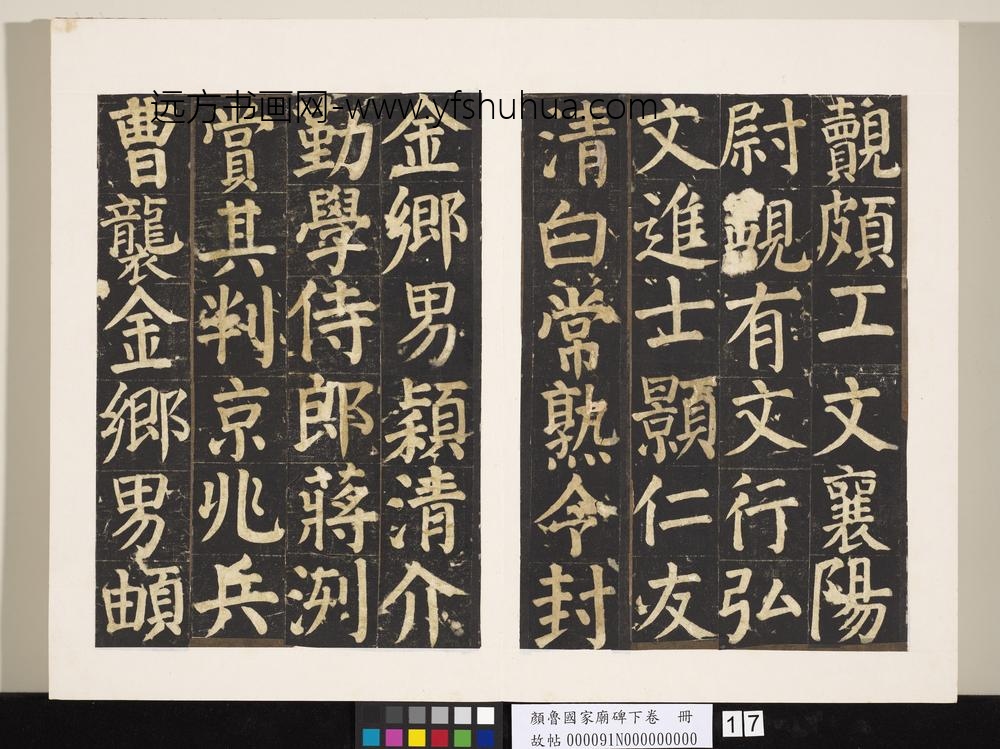 远方书画网-www.yfshuhua.com
覿頗工文襄陽
尉有文行弘
文進士顥仁友
清白常熟令封
金鄉男穎清介
勤學侍郎蔣洌
賞其判京兆兵
曹襲金鄉男頔
顏魯國家廟碑下卷 冊
故帖 000091N000000000
17